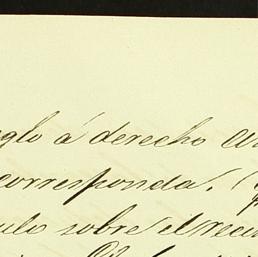 glo á derecho
corresponda. (
ulo sobre el recu